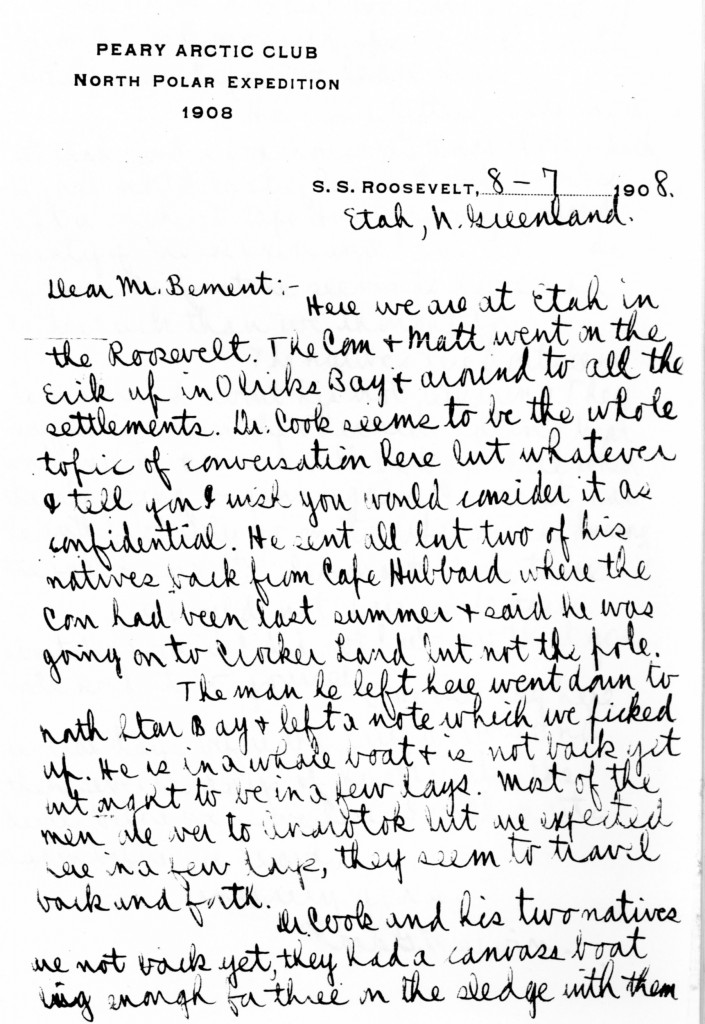 PEARY ARCTIC CLUB
NORTH POLAR EXPEDITION
1908
S. S. ROOSEVELT, 8 – 7 1908.
Etah, N. Greenland.
Dear Mr. Bement:-
Here we are at Etah in
the Roosevelt. The Com + Matt went on the
Erik up in Olriks Bay + around to all the
settlements. Dr. Cook seems to be the whole
topic of conversation here but whatever
I tell you I wish you would consider it as
confidential. He sent all but two of his
natives back from Cape Hubbard where the
Com had been last summer + said he was
going on to Crocker Land but not the pole.
The man he left here went down to
North Star Bay + left a note which we picked
up. He is in a whale boat + is not back yet
but ought to be in a few days. Most of the
men are over to but are expected
here in a few days, they seem to travel
back and forth.
Dr. Cook and his two natives
are not back yet, they had a canvass boat
big enough for three on the sledge with them